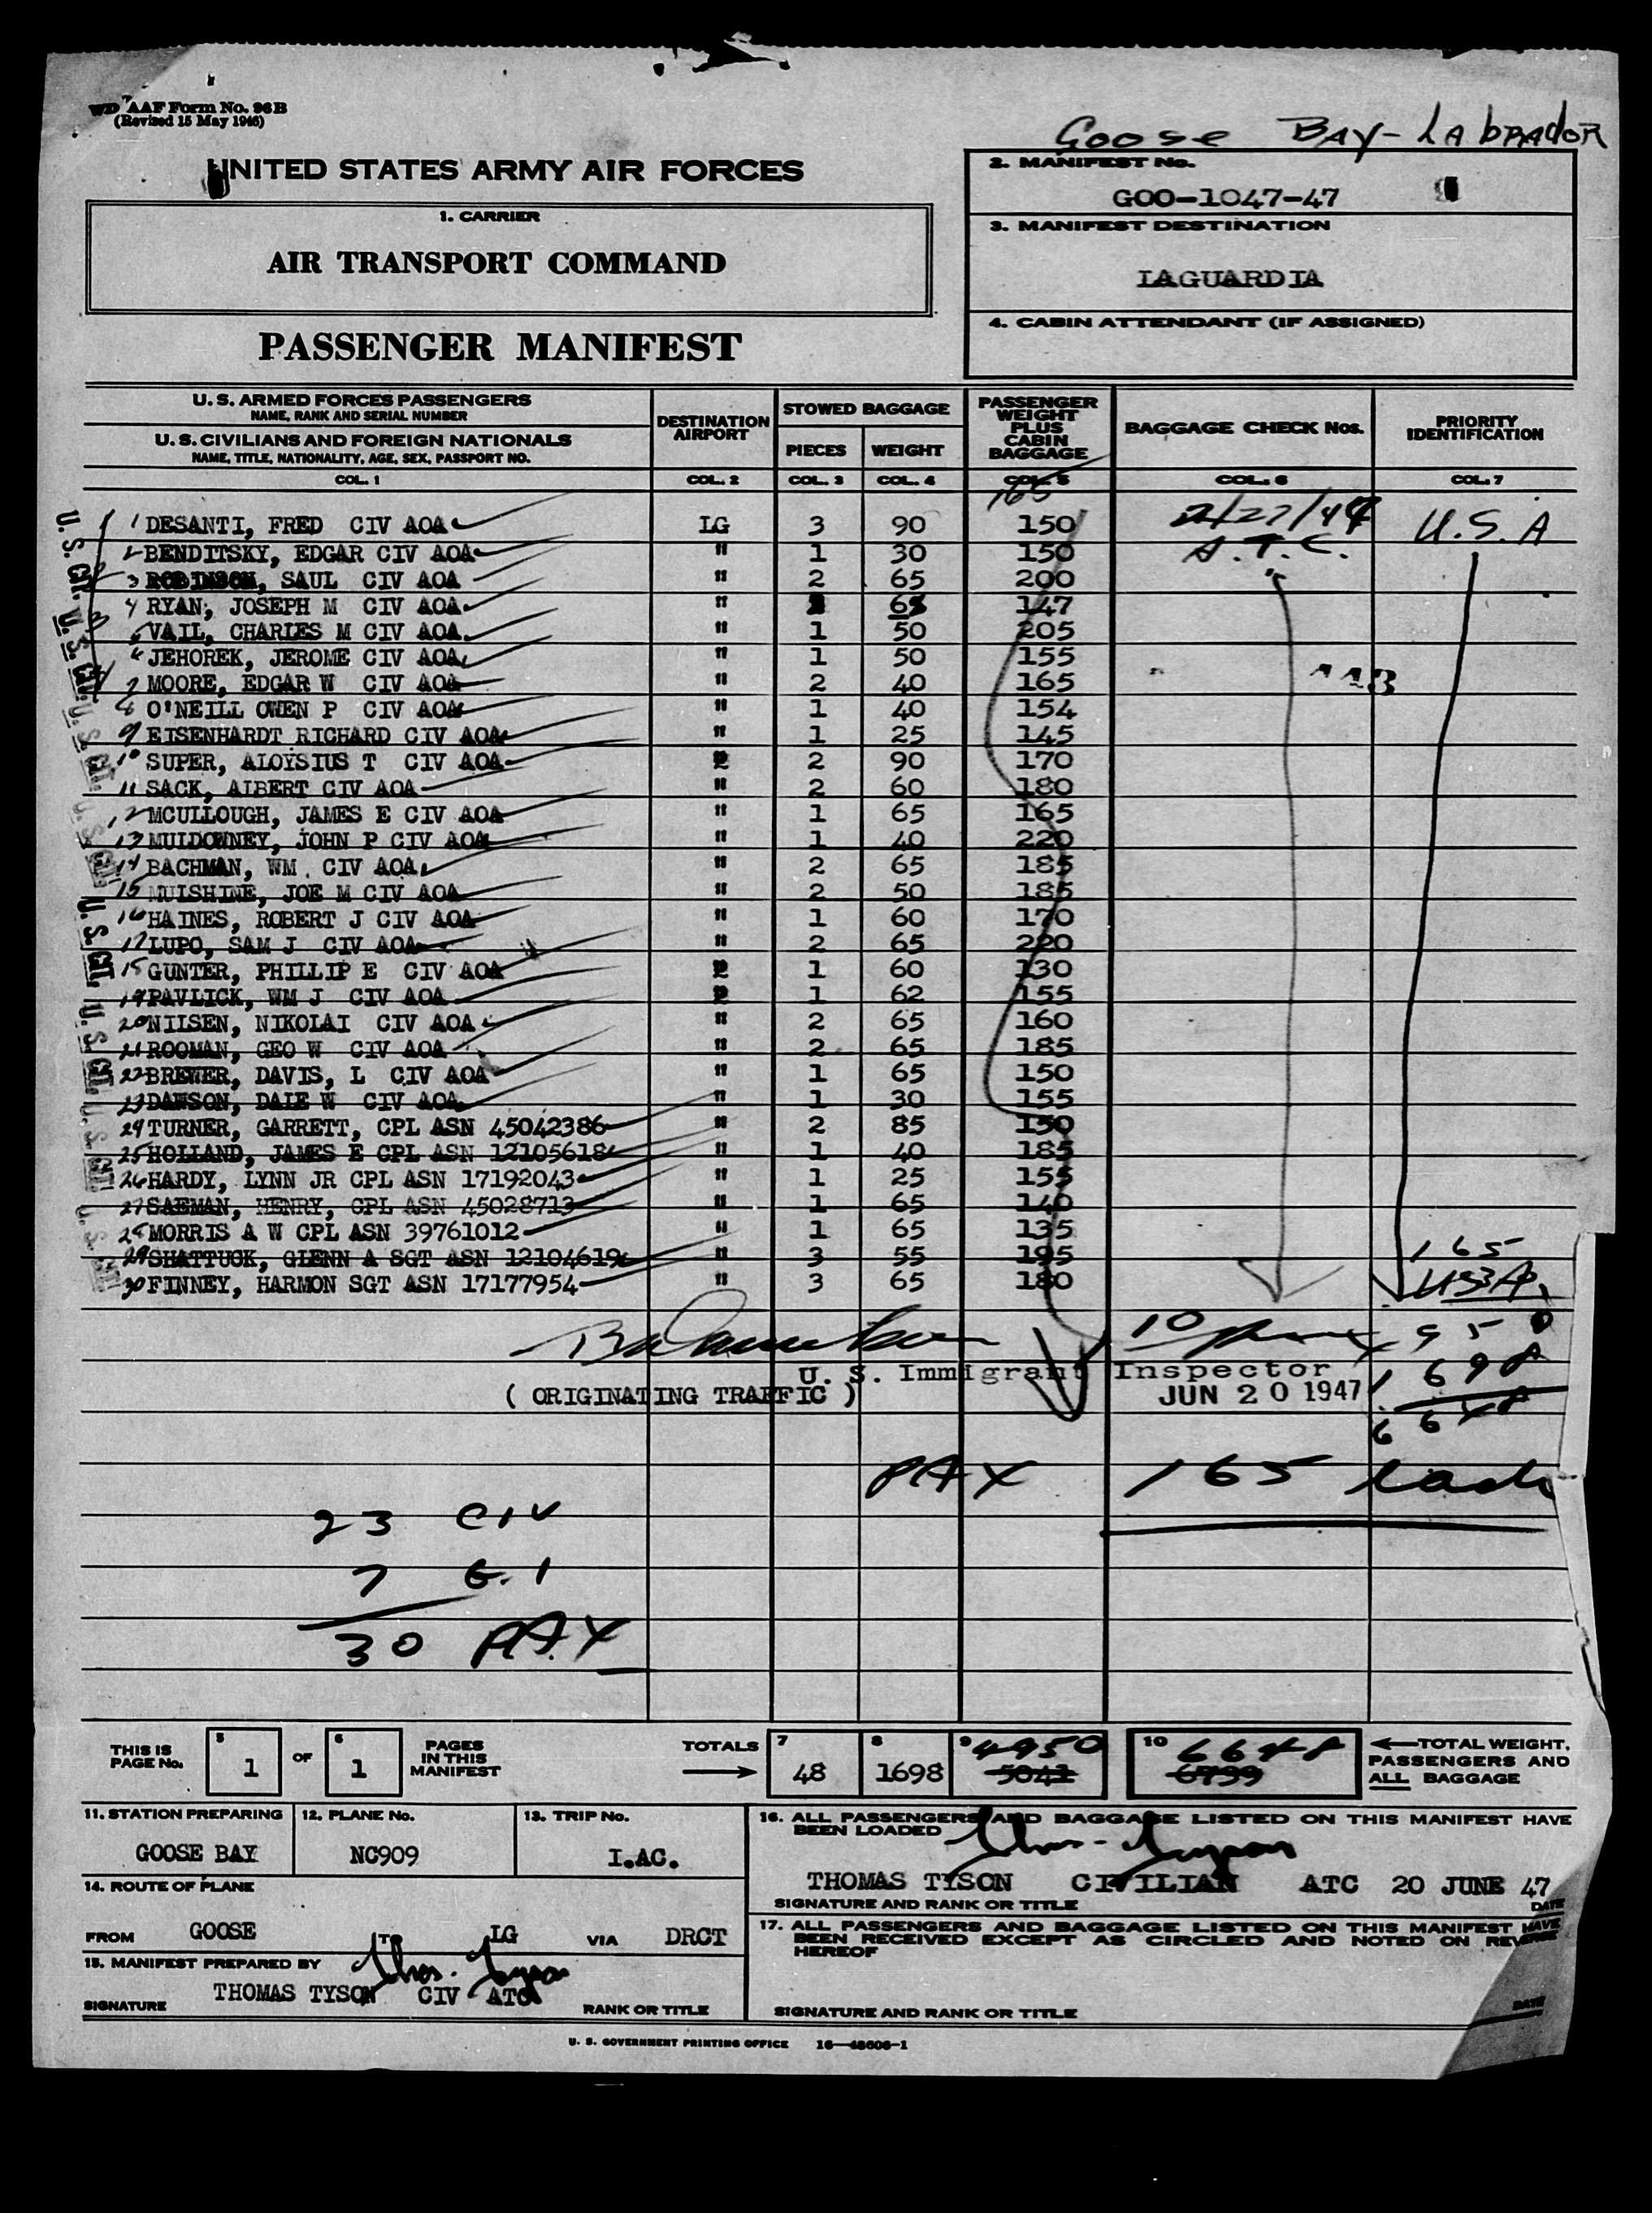 WD AAF Form No. 96B
(Revised 15 May 1946)
Goose Bay - Labrador
UNITED STATES ARMY AIR FORCES
1. CARRIER
AIR TRANSPORT COMMAND
PASSENGER MANIFEST
2. MANIFEST No.
GOO-1047-47
3. MANIFEST DESTINATION
LAGUARDIA
4. CABIN ATTENDANT (IF ASSIGNED)
U. S. ARMED FORCES PASSENGERS
NAME, RANK AND SERIAL NUMBER
U. S. CIVILIANS AND FOREIGN NATIONALS
NAME, TITLE, NATIONALITY, AGE, SEX, PASSPORT NO.
DESTINATION AIRPORT
STOWED BAGGAGE
PIECES WEIGHT
PASSENGER WEIGHT PLUS CABIN BAGGAGE
BAGGAGE CHECK Nos.
PRIORITY IDENTIFICATION
COL. 1 COL. 2 COL. 3 COL. 4 COL. 5 COL. 6 COL. 7
165
1 DESANTI, FRED CIV AOA LG 3 90 150 U.S.A
2 BENDITSKY, EDGAR CIV AOA " 1 30 150 A.T.C.
3 ROBINSON, SAUL CIV AOA " 2 65 200
4 RYAN, JOSEPH M CIV AOA " 65 147
5 VAIL, CHARLES M CIV AOA " 1 50 205
6 JEHOREK, JEROME CIV AOA " 1 50 155
7 MOORE, EDGAR W CIV AOA " 2 40 165
8 O'NEILL OWEN P CIV AOA " 1 40 154
9 EISENHARDT RICHARD CIV AOA " 1 25 145
10 SUPER, ALOYSIUS T CIV AOA " 2 90 170
11 SACK, ALBERT CIV AOA " 2 60 180
12 MCULLOUGH, JAMES E CIV AOA " 1 65 165
13 MULDOWNEY, JOHN P CIV AOA " 1 40 220
14 BACHMAN, WM. CIV AOA " 2 65 185
15 MULSHINE, JOE M CIV AOA " 2 50 185
16 HAINES, ROBERT J CIV AOA " 1 60 170
17 LUPO, SAM J CIV AOA " 2 65 220
18 GUNTER, PHILLIP E CIV AOA " 1 60 130
19 PAVLICK, WM J CIV AOA " 1 62 155
20 NILSEN, NIKOLAI CIV AOA " 2 65 160
21 ROOMAN, GEO W CIV AOA " 2 65 185
22 BREWER, DAVIS, L CIV AOA " 1 65 150
23 DAWSON, DALE W CIV AOA " 1 30 155
24 TURNER, GARRETT, CPL ASN 45042386 " 2 85 150
25 HOLLAND, JAMES E CPL ASN 12105618 " 1 40 185
26 HARDY, LYNN JR CPL ASN 17192043 " 1 25 155
27 SAEMAN, HENRY, CPL ASN 45028713 " 1 65 140
28 MORRIS A W CPL ASN 39761012 " 1 65 135
29 SHATTUCK, GLENN A SGT ASN 12104619 " 3 55 195
30 FINNEY, HARMON SGT ASN 17177954 " 3 65 180
165
U. S. Immigrant Inspector
( ORIGINATING TRAFFIC )
JUN 20 1947
PAX 165 each
23 CIV
7 G.I
30 PAX
THIS IS PAGE No. 5 1 OF 6 1 PAGES IN THIS MANIFEST
TOTALS 7 48 8 1698 9 4950 5041 10 6648 6739
TOTAL WEIGHT, PASSENGERS AND ALL BAGGAGE
11. STATION PREPARING
GOOSE BAY
12. PLANE No.
NC909
13. TRIP No.
I.AC.
14. ROUTE OF PLANE
FROM GOOSE TO LG VIA DRCT
15. MANIFEST PREPARED BY
Thos. Tyson
THOMAS TYSON CIV ATC
SIGNATURE RANK OR TITLE
16. ALL PASSENGERS AND BAGGAGE LISTED ON THIS MANIFEST HAVE BEEN LOADED
Thos. Tyson
THOMAS TYSON CIVILIAN ATC 20 JUNE 47
SIGNATURE AND RANK OR TITLE DATE
17. ALL PASSENGERS AND BAGGAGE LISTED ON THIS MANIFEST HAVE BEEN RECEIVED EXCEPT AS CIRCLED AND NOTED ON REVERSE HEREOF
SIGNATURE AND RANK OR TITLE DATE
U. S. GOVERNMENT PRINTING OFFICE 16-48606-1